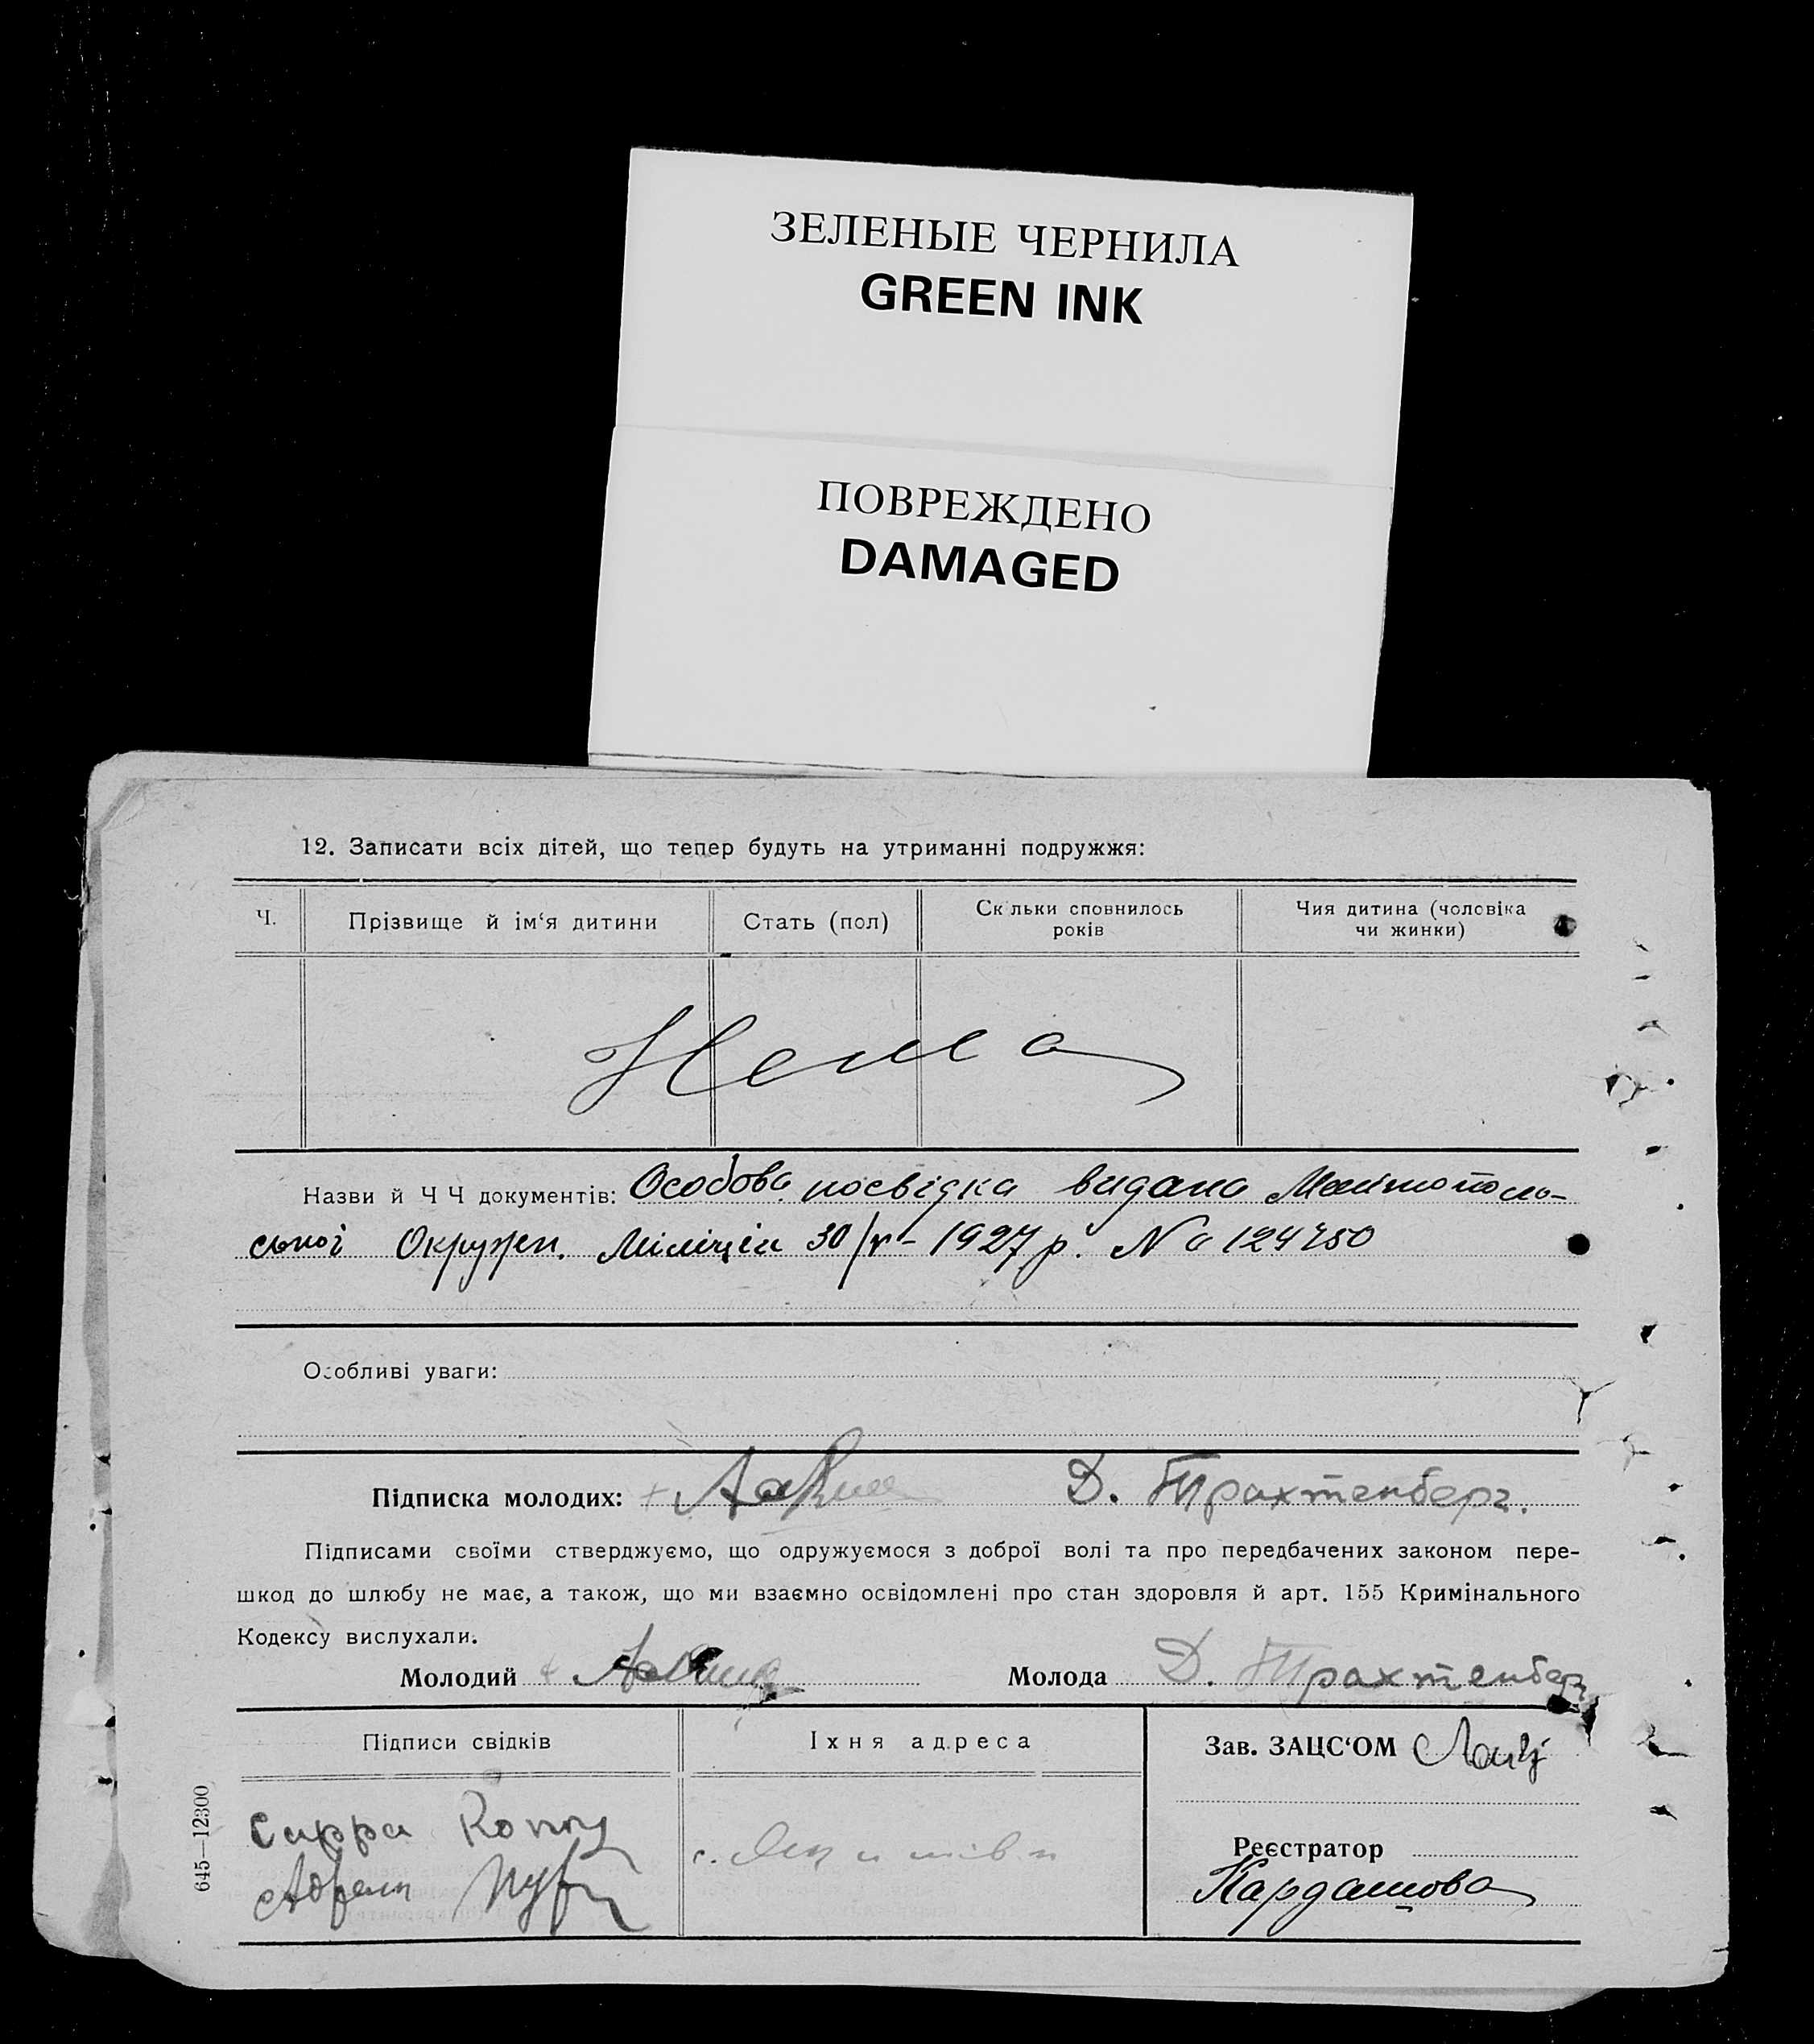 ЗЕЛЕНЫЕ ЧЕРНИЛА
GREEN INK
ПОВРЕЖДЕНО
DAMAGED
12. Записати всіх дітей, що тепер будуть на утриманні подружжя:
Ч. Прізвище й ім‘я дитини Стать (пол) Скільки сповнилось років Чия дитина (чоловіка чи жинки)
Нема
Назви й Ч Ч документів: Особова посвідка видана Мелітополь-
ської Окружн. Міліцієи 30/V- 1927 р. №
Особливі уваги:
Підписка молодих: Д. Трахтенберг.
Підписами своїми стверджуємо, що одружуємося з доброї волі та про передбачених законом пере-
шкод до шлюбу не має, а також, що ми взаємно освідомлені про стан здоровля й арт. 155 Кримінального
Кодексу вислухали.
Молодий Молода Д. Трахтенберг
Підписи свідків Їхня адреса Зав. ЗАЦС‘ОМ
Сарра
Реєстратор
Кардашова
645—12300